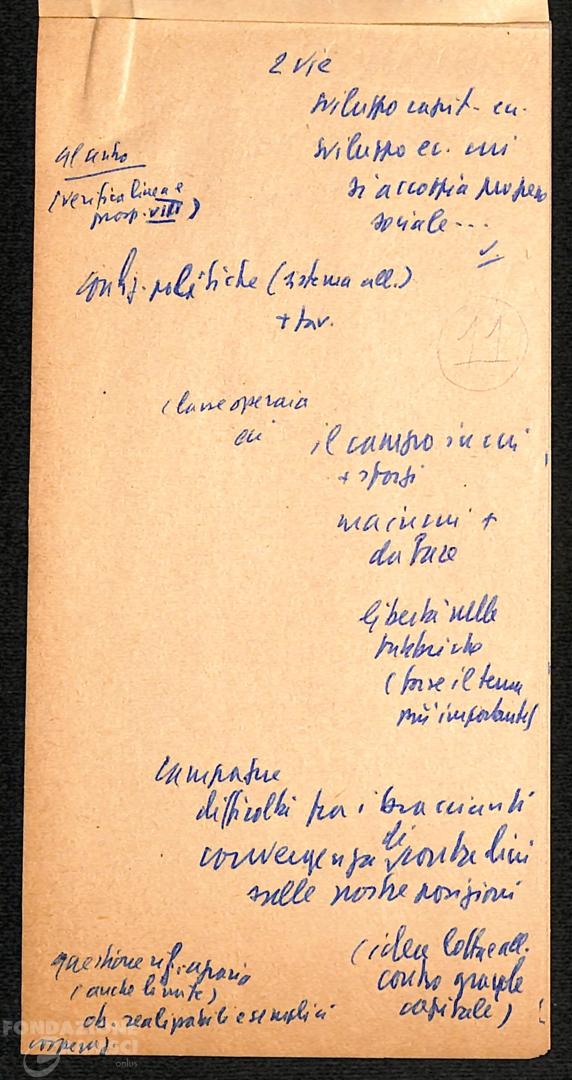 2 vie
sviluppo capit. ec.
sviluppo ec. cui
si accoppia progresso
sociale...
al centro
(verifica linea e
prosp. VIII)
config. politiche (sistema all.)
+ fav.
11
classe operaia
è il campo in cui
+ sforzi
ma in cui +
da fare
libertà nelle
fabbriche
(forse il tema
più importante)
campagne
difficoltà fra i braccianti
convergenza di contadini
sulle nostre posizioni
(idea lotta e all.
contro grande
capitale)
questione rif. agraria
(anche limite)
ob. realizzabili e semplici
cooperaz.
FONDAZIONE
onlus